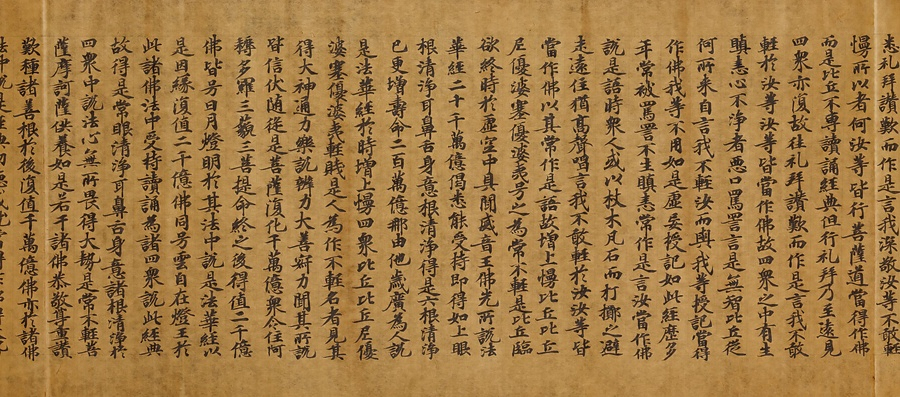 悉礼拜讃歎而作是言我深敬汝等不敢輕
慢所以者何汝等皆行菩薩道當得作佛
而是比丘不專讀誦經典但行礼拜乃至遠見
四衆亦復故往礼拜讃歎而作是言我不敢
輕於汝等皆當作佛故四衆之中有生
瞋恚心不淨者惡口罵詈言是無智比丘從
何所来自言我不輕汝而與我等授記當得
作佛我等不用如是虛妄授記如此經歷多
年常被罵詈不生瞋恚常作是言汝當作佛
說是語時衆人或以杖木瓦石而打擲之避
走遠住猶髙聲唱言我不敢輕於汝汝等皆
當作佛以其常作是語故增上慢比丘比丘
尼優婆塞優婆夷号之為常不輕是比丘臨
欲終時於虛空中具聞威音王佛先所說法
華經二十千萬億偈悉能受持即得如上眼
根清淨耳鼻舌身意根清淨得是六根清淨
已更增壽命二百萬億那由他歲廣為人說
是法華經於時增上慢四衆比丘比丘尼優
婆塞優婆夷輕賤是人為作不輕名者見其
得大神通力樂說辯力大善寂力聞其所說
皆信伏随從是菩薩復化千萬億衆令住阿
耨多羅三藐三菩提命終之後得值二千億
佛皆号日月燈明於其法中說是法華經以
是因縁復值二千億佛同号雲自在燈王於
此諸佛法中受持讀誦為諸四衆說此經典
故得是常眼清淨耳鼻舌身意諸根清淨於
四衆中說法心無所畏得大勢是常不輕菩
薩摩訶薩供養如是若干諸佛恭敬尊重讃
歎種諸善根於後復值千萬億佛亦於諸佛